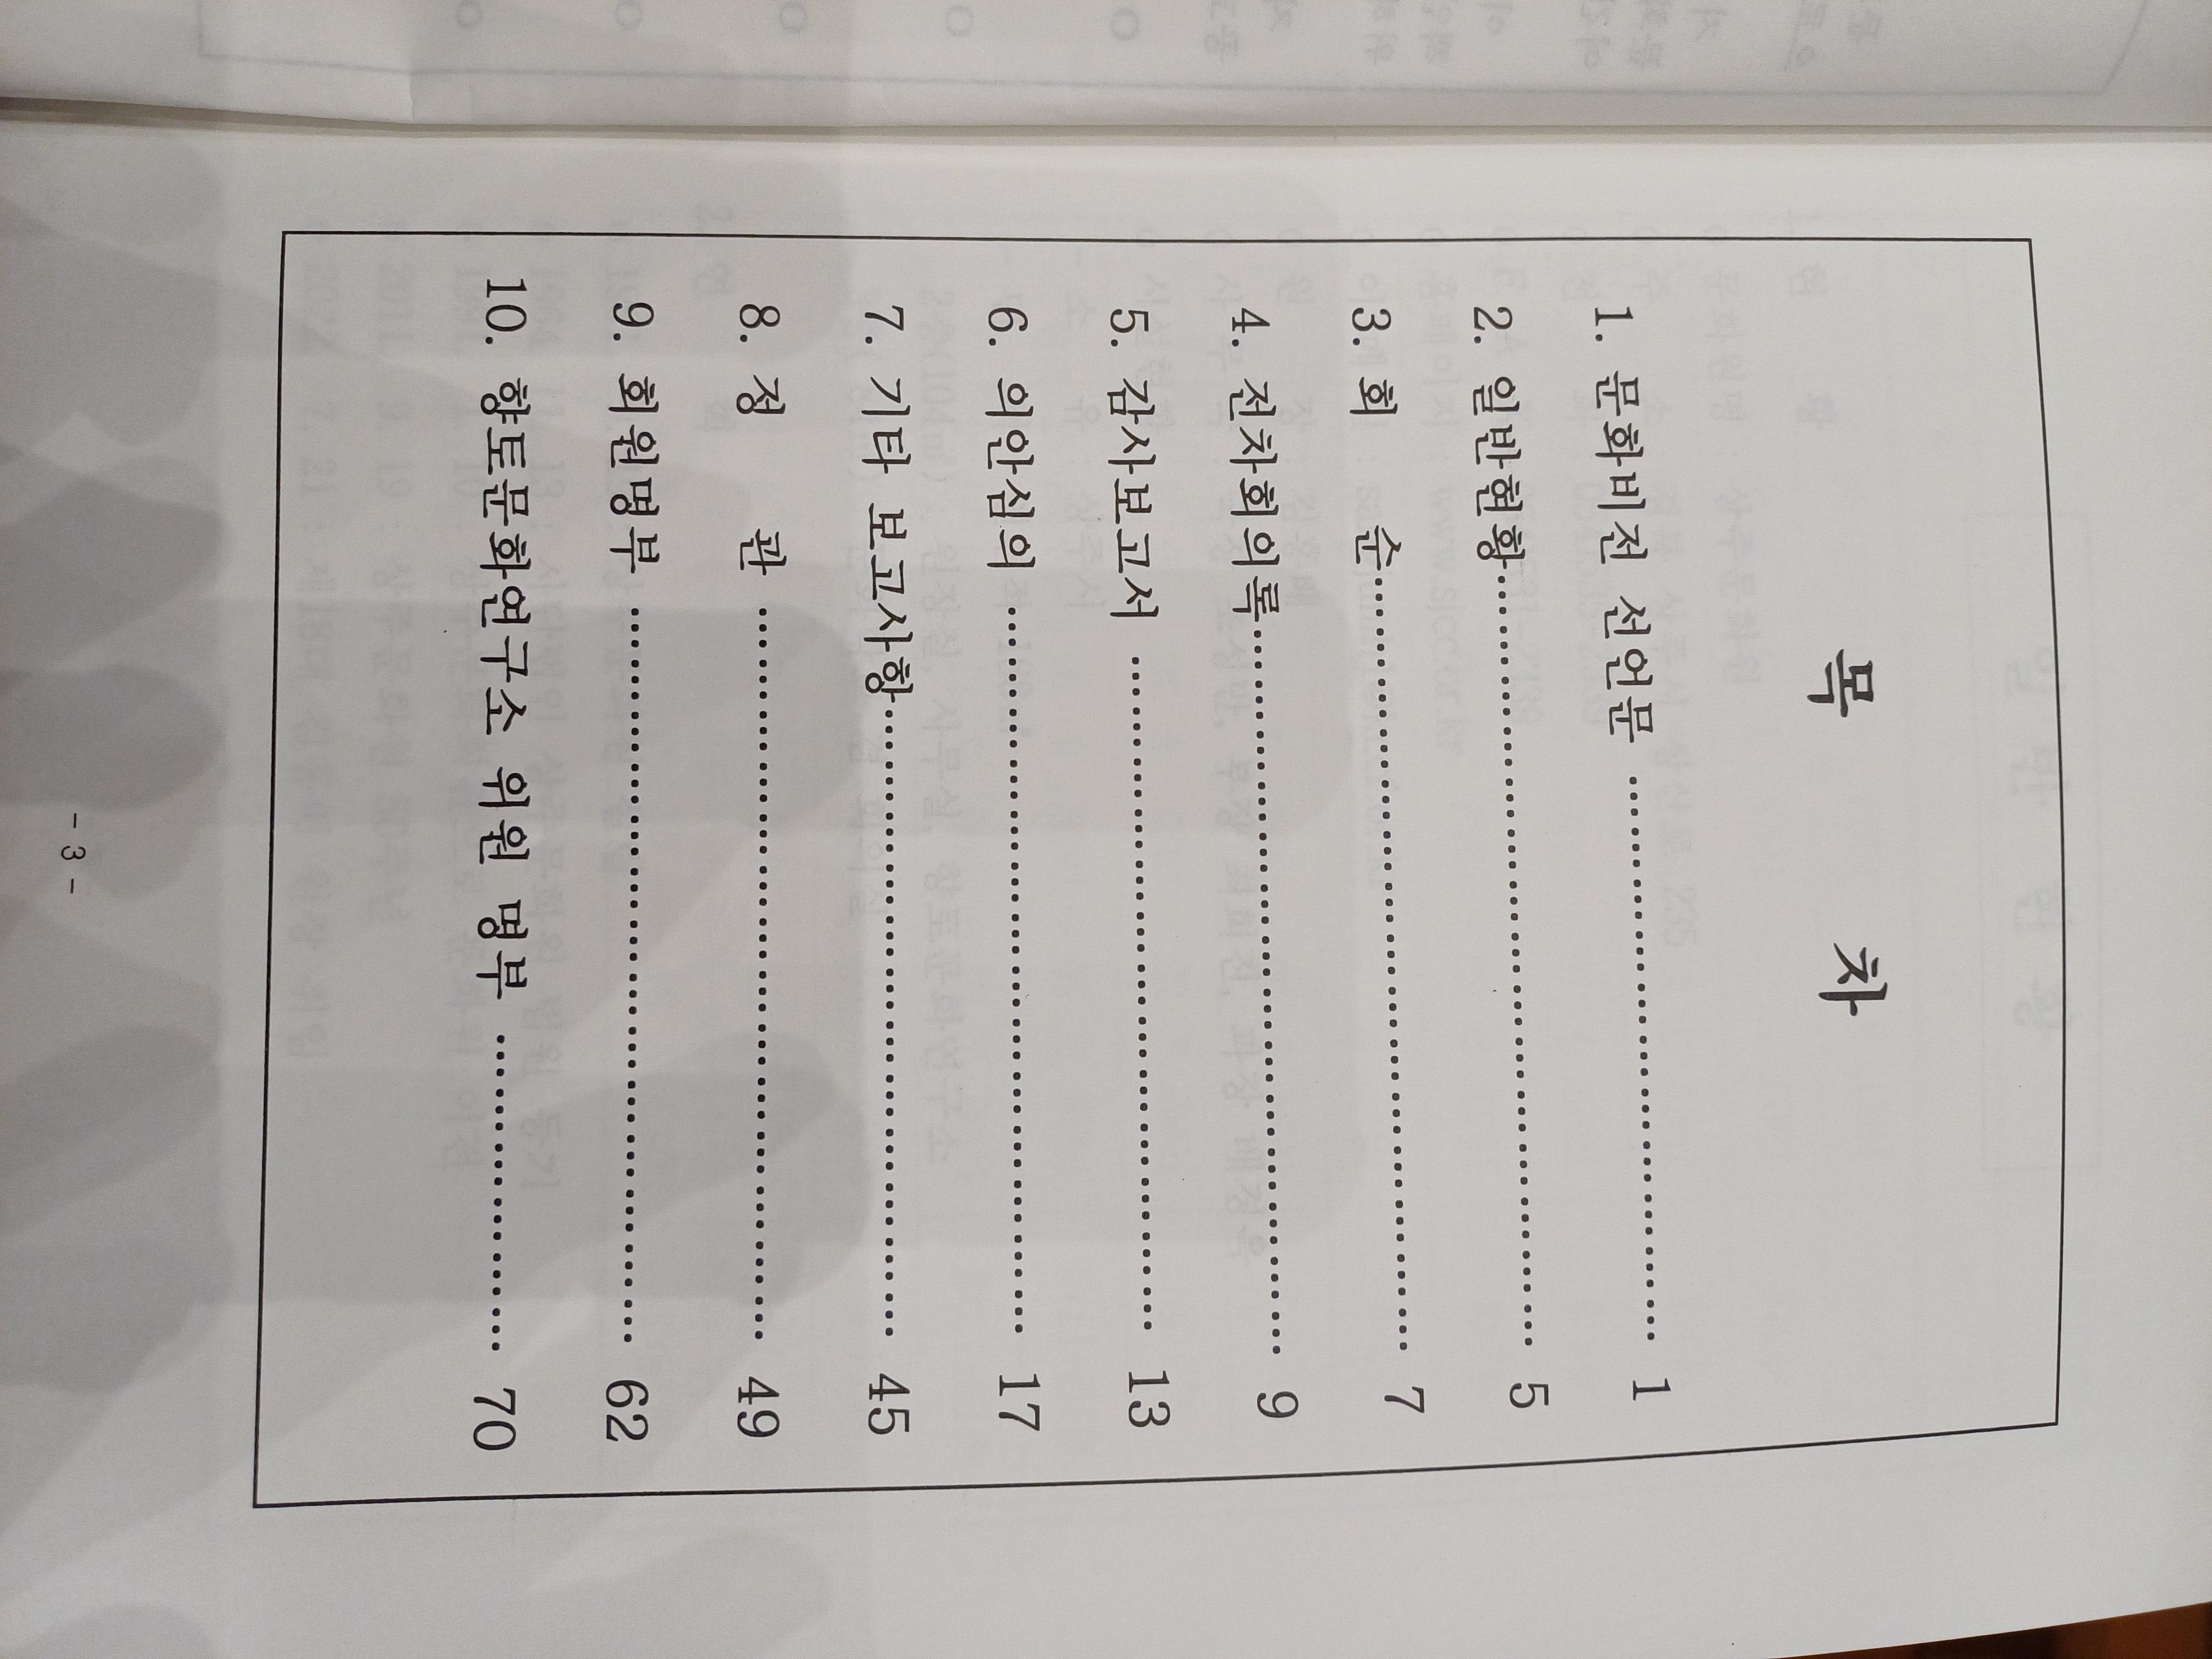 목 차
1. 문화비전 선언문 ························ 1
2. 일반현황································ 5
3. 회 순································ 7
4. 전차회의록······························ 9
5. 감사보고서 ···························· 13
6. 의안심의 ······························ 17
7. 기타 보고사항·························· 45
8. 정 관 ······························ 49
9. 회원명부 ······························ 62
10. 향토문화연구소 위원 명부 ·············· 70
- 3 -